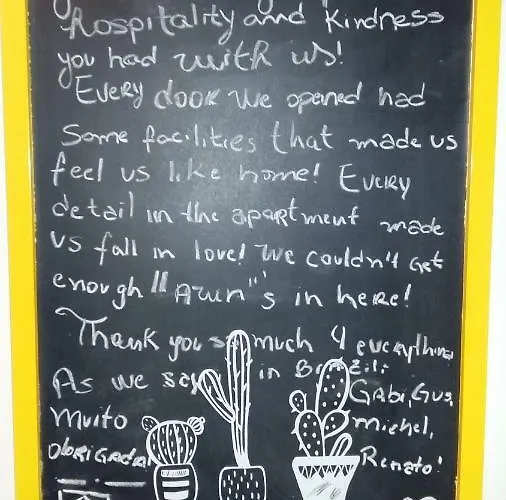 hospitality and kindness
you had with us!
Every door we opened had
some facilities that made us
feel us like home! Every
detail in the apartment made
us fall in love! We couldn't get
enough "Awn"s in here!
Thank you so much 4 everything
As we say in Brazil:
Muito
obrigada!
Gabi, Gus,
Michel,
Renato!